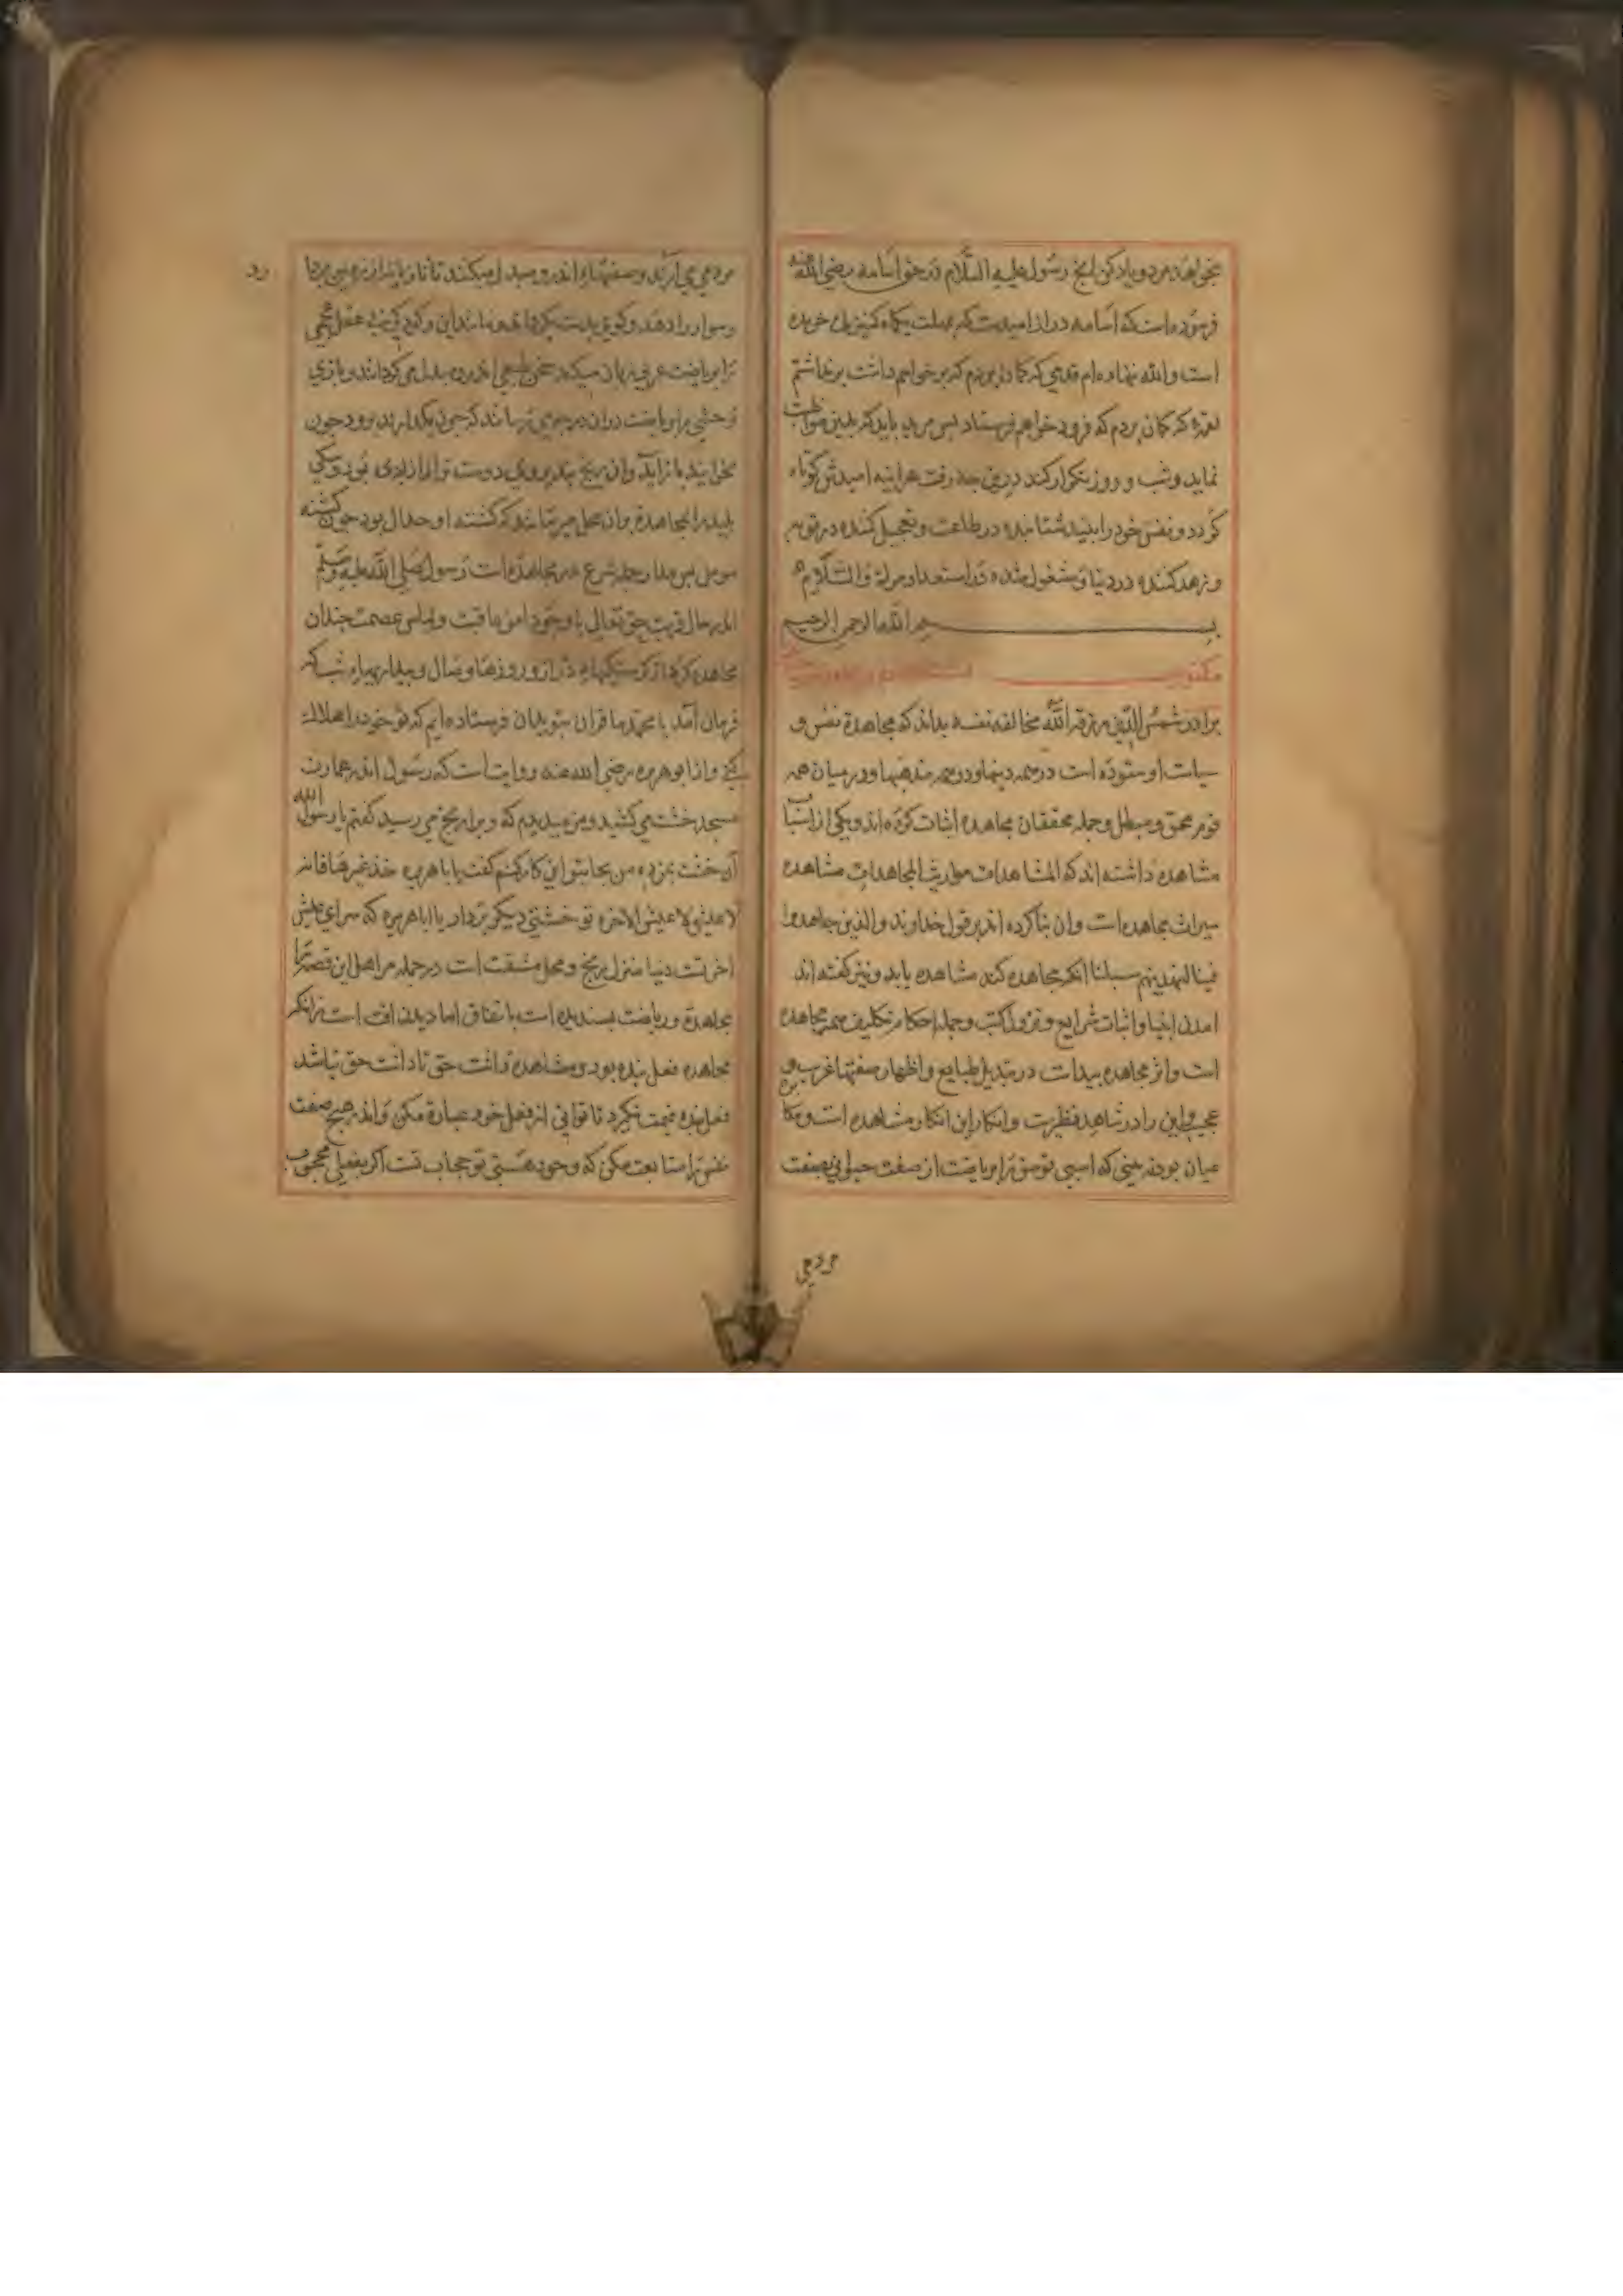 بخواهند مرد و یاد کن انچ رسول علیه السّلام در حق اسامه رضی الله عنه
فرموده است که اسامه دراز امیدست که بمهلت یکماه کنیزک خریده
است والله ننهاده ام قدمی که کمان بردم که برخواهم داشت و برنداشتم
لقمه که کمان بردم که فرود خواهم فرستاد پس مرید باید که بدین مواظبت
نماید و شب و روز تکرار کند درین جد رفت هراینه امیدش کوتاه
کردد و نفس خود را بیند شتابنده در طاعت و تعجیل کننده در توبه
و زهد کننده در دنیا و مشغول شده در استعداد مرک والسّلام
بسم الله الرحمن الرحیم
مکتوب
برادر شمس الدّین رزقه الله مخالفة نفسه بداند که مجاهدة نفس و
سیاست او ستوده است در همه دینها و در همه مذهبها و در میان همه
قوم محق و مبطل و جمله محققان مجاهده اثبات کرده اند و یکی از اسباب
مشاهده داشته اند که المشاهدات مواریث المجاهدات مشاهده
میراث مجاهده است وان بنا کرده اند بر قول خداوند والذین جاهدوا
فینا لنهدینهم سبلنا انکه مجاهده کند مشاهده یابد و نیز کفته اند
امدن انبیا و اثبات شرایع و نزول کتب و جمله احکام تکلیف همه مجاهده
است و اثر مجاهده پیداست در تبدیل طبایع و اظهار صفتها غریب و
عجیب و این را در شاهد نظیرست و انکار این انکار مشاهده است و مکابره
عیان بود نه بینی که اسبی توسن را بریاضت از صفت حیوانی بصفت
مردمی
مردمی می آرند و صفتها اندرو مبدل میکنند تا تازیانه از زمین بردارد
و سوار را دهد
ترا بریاضت عربی زبان میکند سخن طبعی اندرو بدل می کردانند و بازی
وحشی را بریاضت بدان درجه می رسانند که چون بکذارند برود چون
بخوانند باز آید وان رنج بند بر وی دوست تر از ازادی بود و سکی
پلید را بمجاهدة بدان محل میرسانند که کشته او حلال بود چون کشته
مومن پس مدار جمله شرع بر مجاهده است رسول صلی الله علیه وسلّم
اندر حال قربت حق تعالی با وجود امن عاقبت و لباس عصمت چندان
مجاهده کرد از کرسنکیها دراز و روزها وصال و بیداریها شب که
فرمان آمد یا محمد ما قران بتو بدان فرستاده ایم که تو خود را هلاک
کنی و از ابو هریره رضی الله عنه روایت است که رسول اندر عمارت
مسجد خشت می کشید و من میدیدم که ویرا رنج می رسید کفتم یا رسول الله
آن خشت بمن ده من بجای تو این کار کنم کفت یا ابا هریره خذ غیرها فانه
لا عیش الا عیش الاخره تو خشتی دیکر بردار یا ابا هریره که سرای عیش
اخرتست دنیا منزل رنج و محل مشقت است در جمله مر اهل این قصه را
مجاهدة و ریاضت پسندیده است باتفاق اما دیدن افت است زانکه
مجاهده فعل بنده بود و مشاهده داشت حق تا داشت حق نباشد
فعل بنده قیمت نکیرد تا توانی از فعل خود عبارة مکن و اندر هیچ صفت
نفس را متابعت مکن که وجود هستی تو حجاب تست اکر بفعلی محجوب